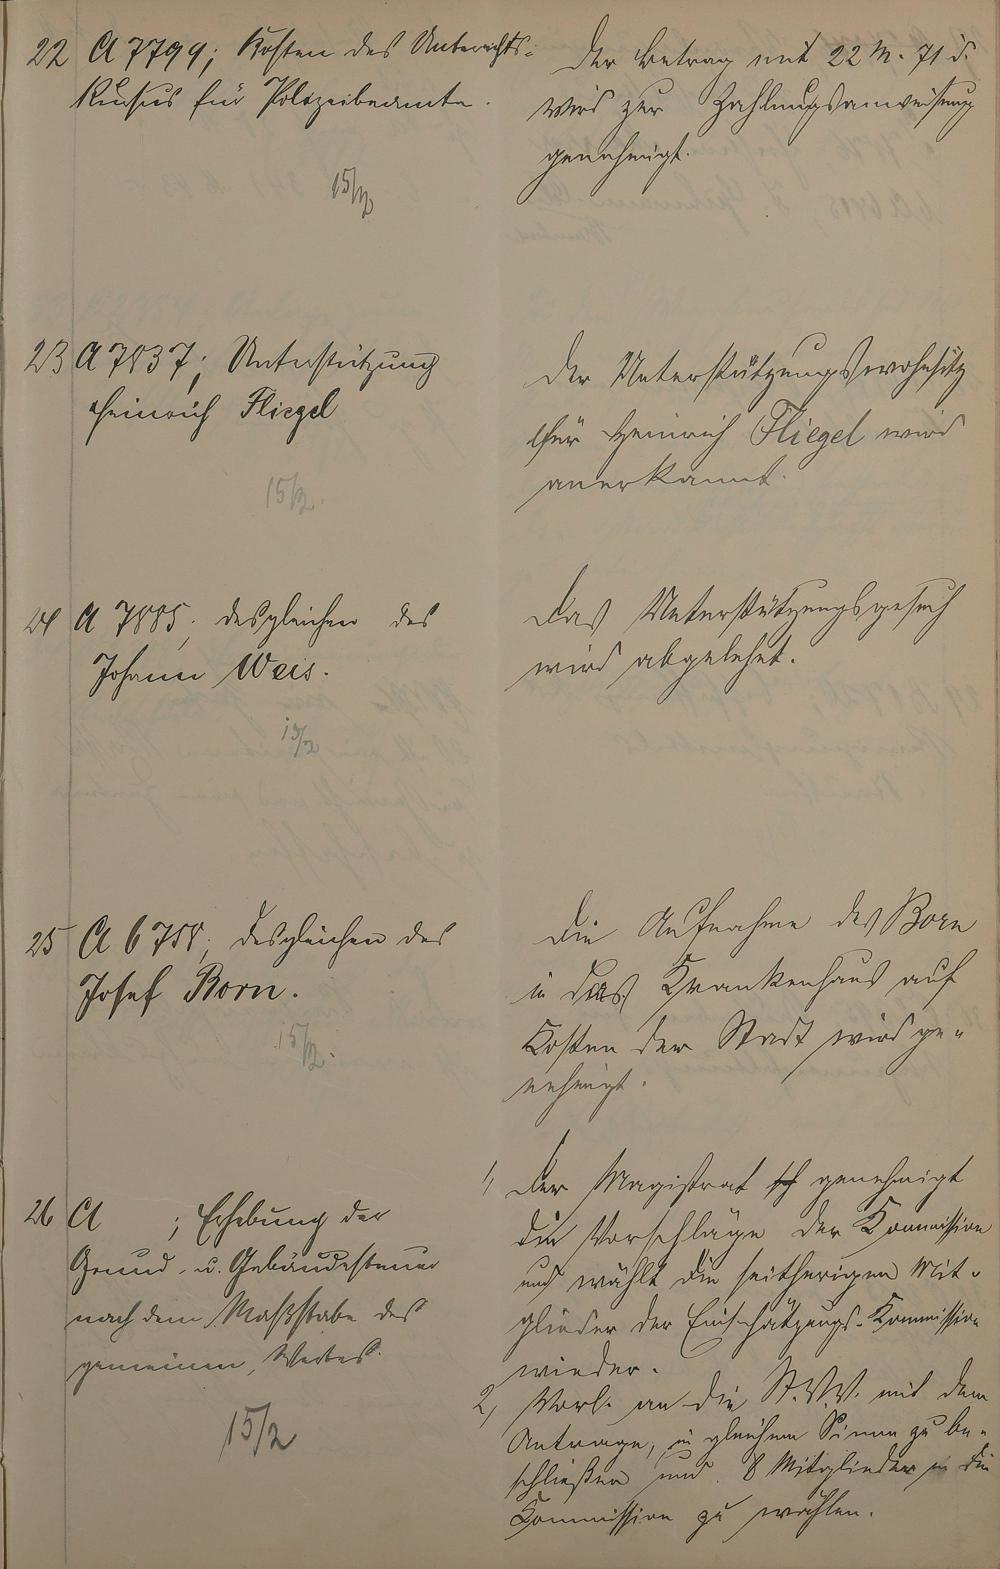 22 A 7799; Kosten des Unterrichts-
kursus für Polizeibeamte.
15/2
Der Betrag mit 22 M. 71 d.
wird zur Zahlungsanweisung
genehmigt.
23 A 7837; Unterstützung
Heinrich Fliegel
15/2.
Der Unterstützungswohnsitz
für Heinrich Fliegel wird
anerkannt.
24 A 7885; desgleichen des
Johann Weis.
15/2
Das Unterstützungsgesuch
wird abgelehnt.
25 A 6758; desgleichen des
Josef Born.
15/2.
Die Aufnahme des Born
in das Krankenhaus auf
Kosten der Stadt wird ge-
nehmigt.
26 A ; Erhebung der
Grund- u. Gebäudesteuer
nach dem Maßstabe des
gemeinen Wertes.
15/2
1, Der Magistrat genehmigt
die Vorschläge der Kommission
und wählt die seitherigen Mit-
glieder der Einschätzungs-Kommission
wieder.
2, Vorl. an die St.V.V. mit dem
Antrage, in gleichem Sinne zu be-
schließen und 8 Mitglieder in die
Kommission zu wählen.